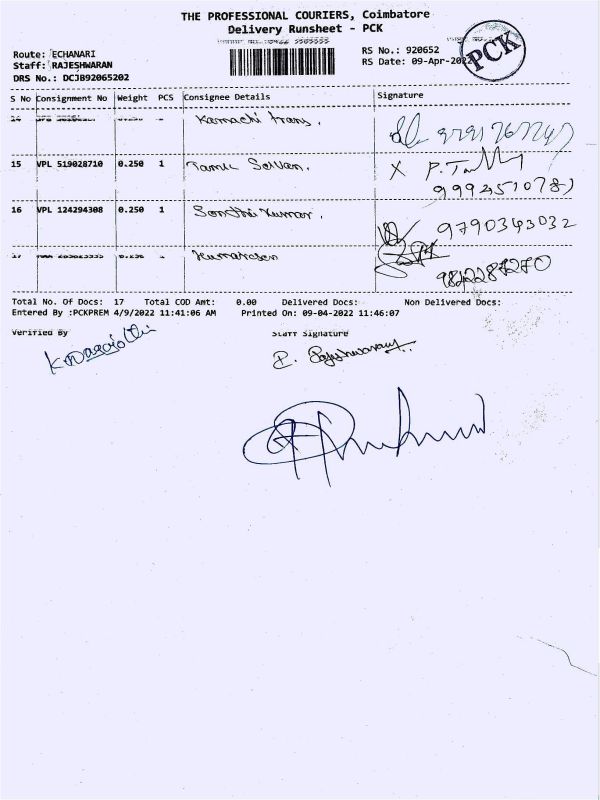 THE PROFESSIONAL COURIERS, Coimbatore
Delivery Runsheet - PCK
Route: ECHANARI
Staff: RAJESHWARAN
DRS No.: DCJB92065202
RS No.: 920652
RS Date: 09-Apr-2022
PCK
S No Consignment No Weight PCS Consignee Details Signature
Kamachi trans.
15 VPL 519028710 0.250 1 Tamil Selvan. X
16 VPL 124294308 0.250 1 Senthil Kumar. 9790343032
17 Kumaresan
Total No. Of Docs: 17 Total COD Amt: 0.00 Delivered Docs: Non Delivered Docs:
Entered By :PCKPREM 4/9/2022 11:41:06 AM Printed On: 09-04-2022 11:46:07
Verified By Staff Signature
P. Rajeshwaran